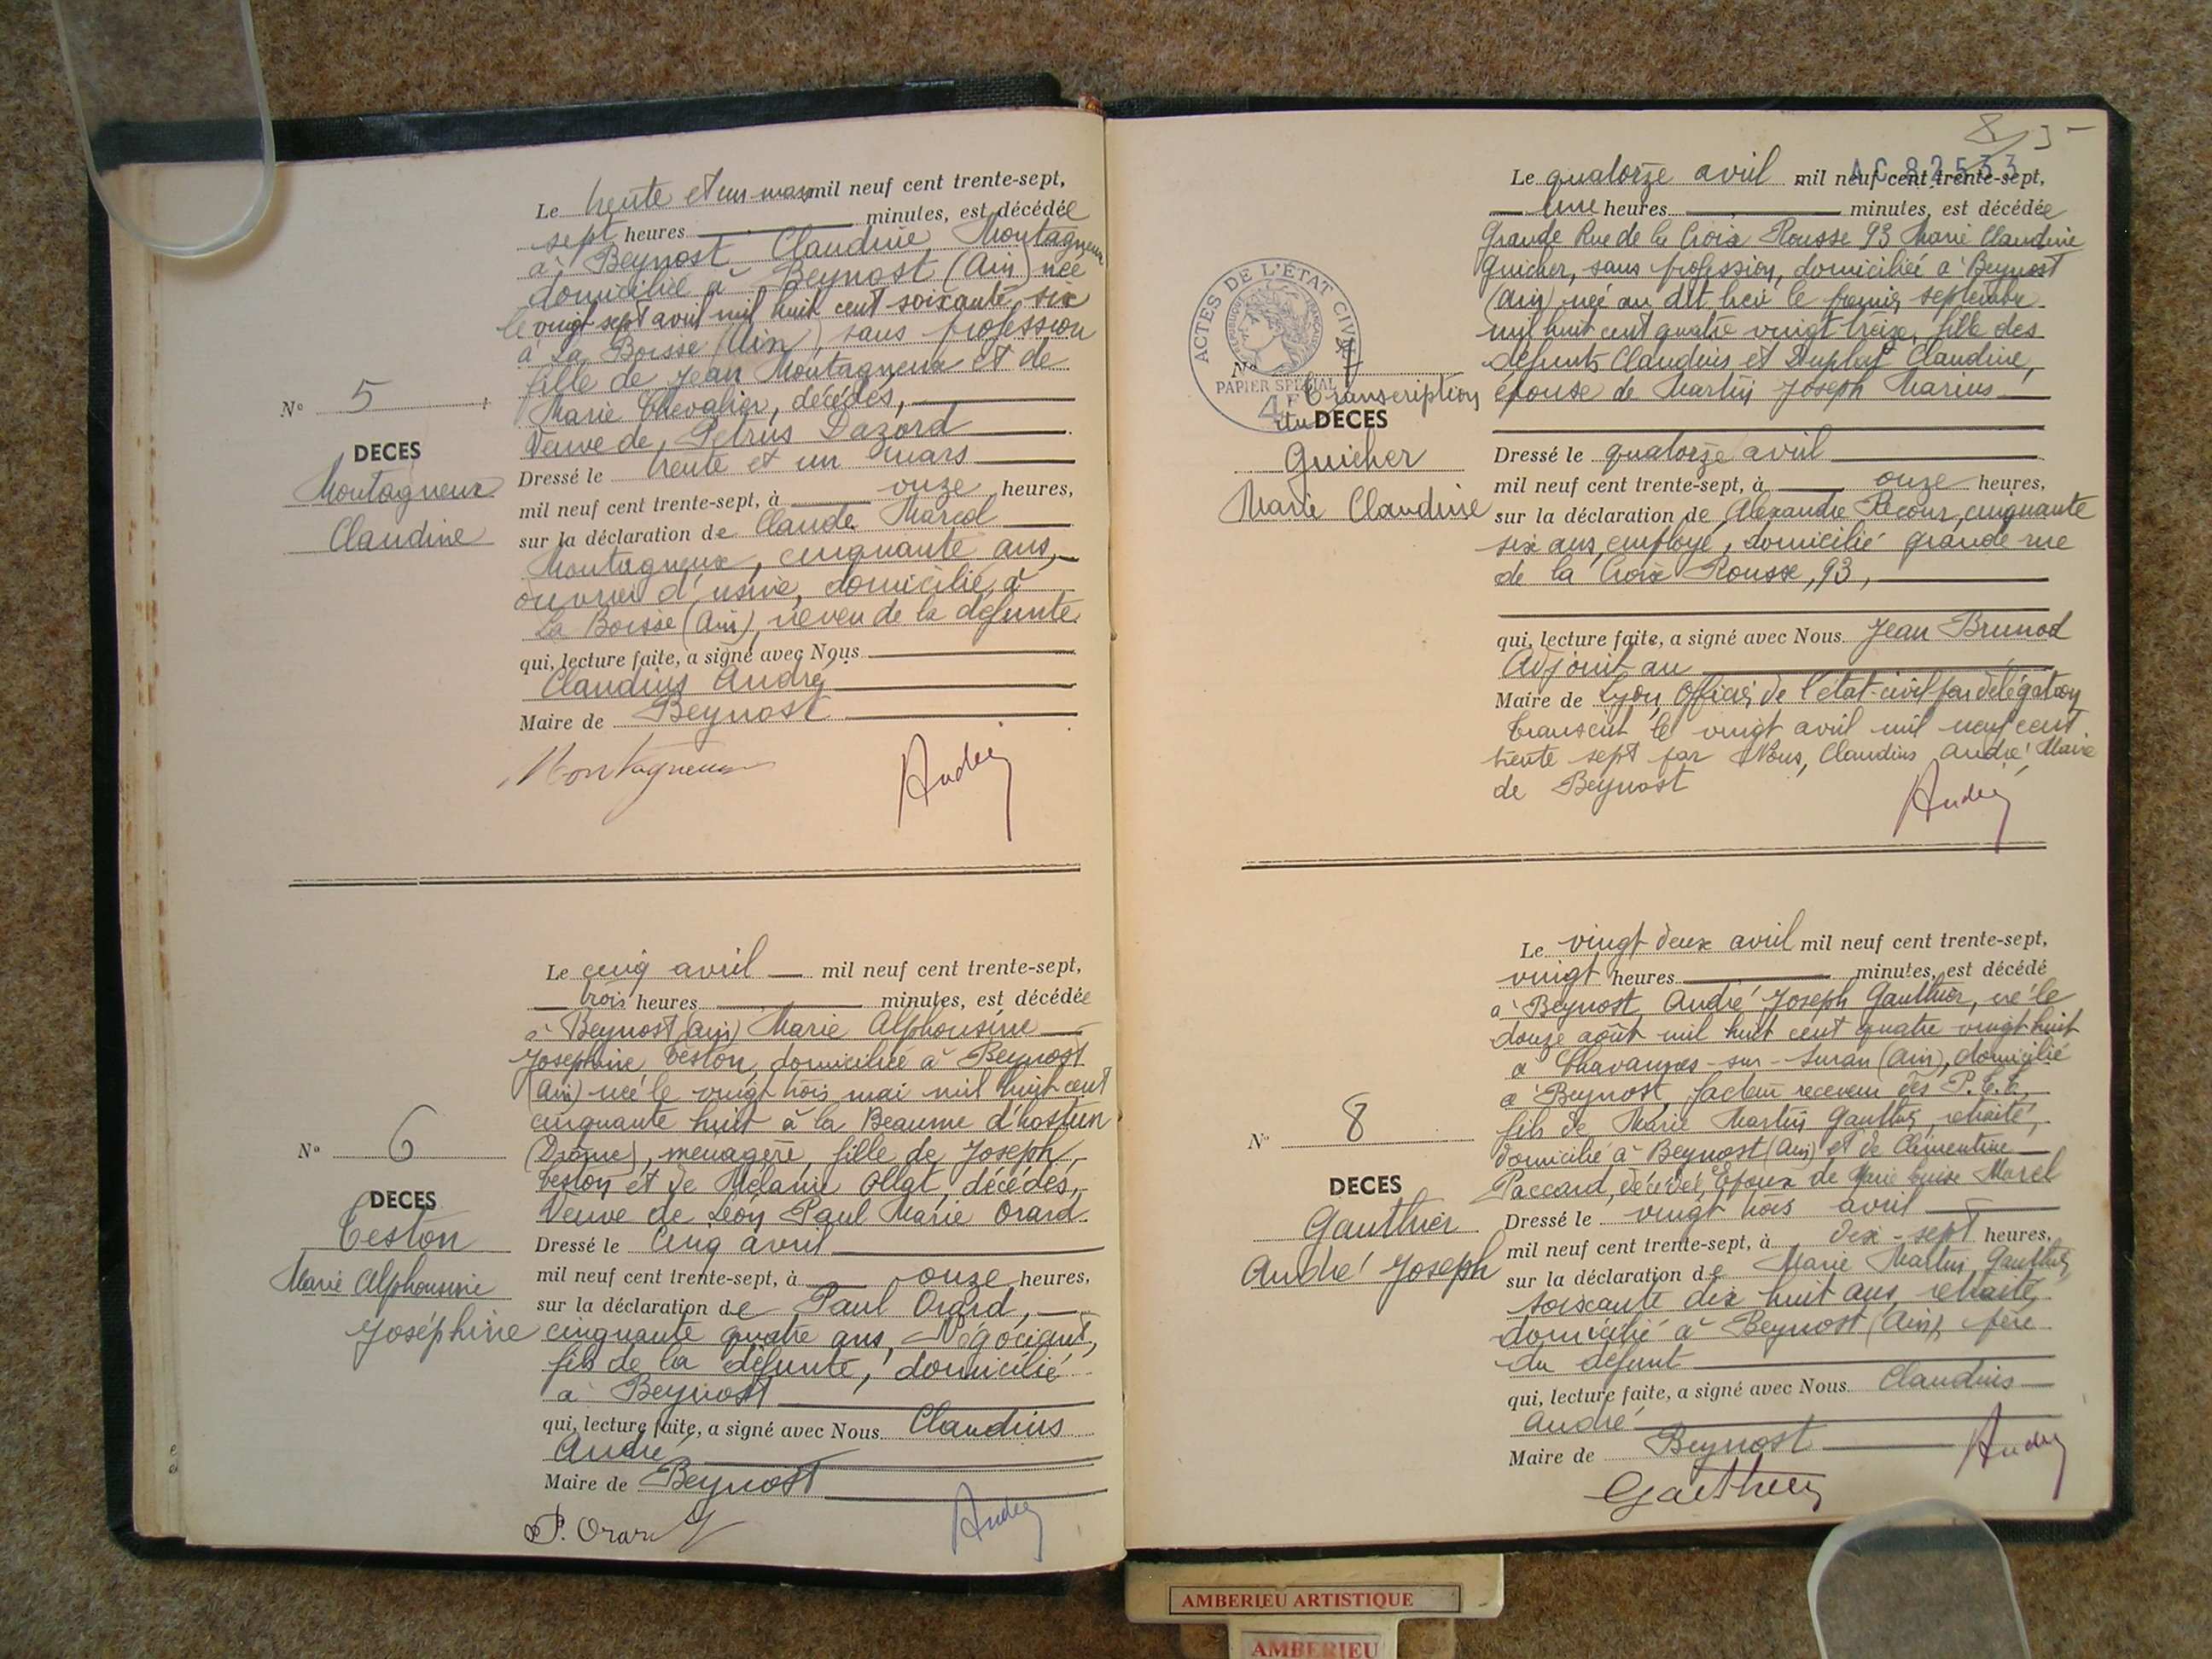 Le trente et un mars mil neuf cent trente-sept,
sept heures minutes, est décédée
à Beynost Claudine Montagneux
domiciliée à Beynost (Ain) née
le vingt sept avril mil huit cent soixante six
à La Boisse (Ain), sans profession
fille de Jean Montagneux et de
Marie Chevalier, décédés,
Veuve de Petrus Dazord
N° 5
DECES
Montagneux
Claudine
Dressé le trente et un mars
mil neuf cent trente-sept, à onze heures,
sur la déclaration de Claude Marcel
Montagneux, cinquante ans,
ouvrier d'usine, domicilié à
La Boisse (Ain), neveu de la défunte
qui, lecture faite, a signé avec Nous
Claudius André
Maire de Beynost
Montagneux
André
Le cinq avril mil neuf cent trente-sept,
trois heures minutes, est décédée
à Beynost (Ain) Marie Alphonsine
Joséphine Teston, domiciliée à Beynost
(Ain) née le vingt trois mai mil huit cent
cinquante huit à la Beaume d'hostun
(Drôme), ménagère, fille de Joseph
Teston et de Mélanie décédés,
Veuve de Léon Paul Marie Orard
N° 6
DECES
Teston
Marie Alphonsine
Joséphine
Dressé le cinq avril
mil neuf cent trente-sept, à onze heures,
sur la déclaration de Paul Orard,
cinquante quatre ans, Négociant,
fils de la défunte, domicilié
à Beynost
qui, lecture faite, a signé avec Nous Claudius
André
Maire de Beynost
P. Orard
André
8
AC 82533
Le quatorze avril mil neuf cent trente-sept,
une heures minutes, est décédée
Grande Rue de la Croix Rousse 93 Marie Claudine
Guicher, sans profession, domiciliée à Beynost
(Ain) née au dit lieu le premier septembre
mil huit cent quatre vingt treize, fille des
défunts Claudius et Duplay Claudine,
épouse de Martin Joseph Marius
ACTES DE L'ÉTAT CIVIL
RÉPUBLIQUE FRANÇAISE
PAPIER SPÉCIAL
4F
N° 7
Transcription
du DECES
Guicher
Marie Claudine
Dressé le quatorze avril
mil neuf cent trente-sept, à onze heures,
sur la déclaration de Alexandre Recour, cinquante
six ans, employé, domicilié grande rue
de la Croix Rousse, 93,
qui, lecture faite, a signé avec Nous Jean Brunod
Adjoint au
Maire de Lyon, Officier de l'état-civil par délégation
Transcrit le vingt avril mil neuf cent
trente sept par Nous, Claudius André Maire
de Beynost
André
Le vingt deux avril mil neuf cent trente-sept,
vingt heures minutes, est décédé
à Beynost, André Joseph Gauthier, né le
douze août mil huit cent quatre vingt huit
à Chavannes-sur-Suran (Ain), domicilié
à Beynost, facteur receveur des P.T.T.
fils de Marie Martin Gauthier, retraité,
domicilié à Beynost (Ain) et de Clémentine
Paccard, décédée, Epoux de Marie Louise Morel
N° 8
DECES
Gauthier
André Joseph
Dressé le vingt trois avril
mil neuf cent trente-sept, à dix-sept heures,
sur la déclaration de Marie Martin Gauthier,
soixante dix huit ans, retraité,
domicilié à Beynost (Ain), père
du défunt
qui, lecture faite, a signé avec Nous Claudius
André
Maire de Beynost
André
Gauthier
AMBERIEU ARTISTIQUE
AMBERIEU